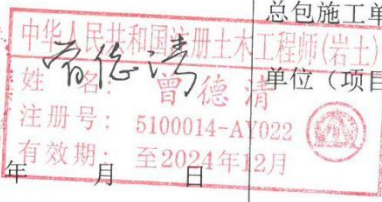 总包施工单
中华人民共和国注册土木工程师(岩土)
曾德清
姓 名: 曾德清
单位(项目
注册号: 5100014-AY022
有效期: 至2024年12月
年 月 日